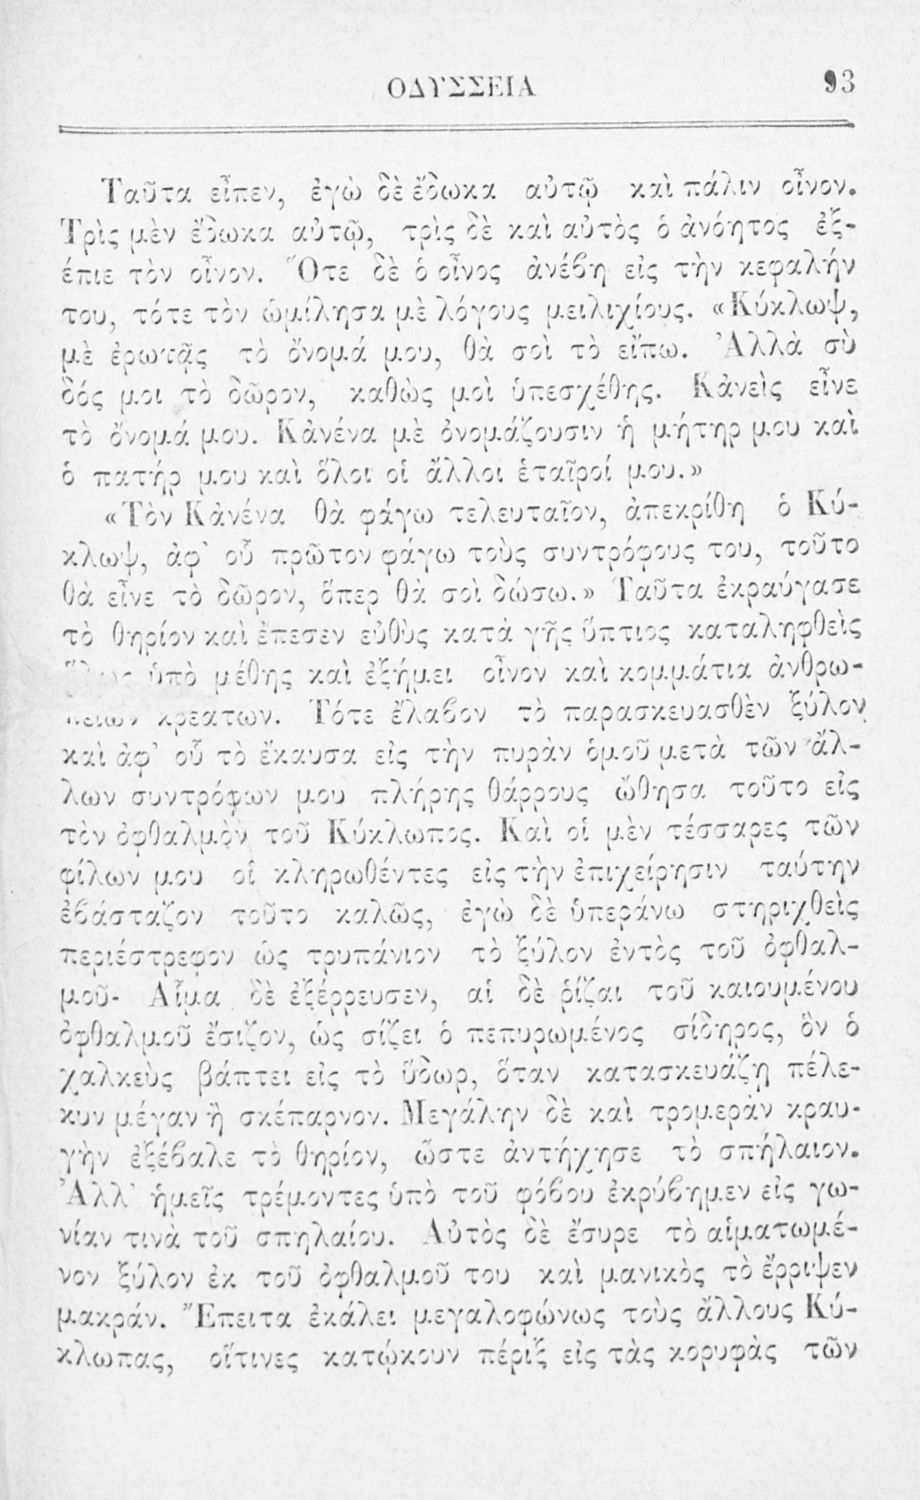 ΟΔΥΣΣΕΙΑ 93
Ταῦτα εἶπεν, ἐγὼ δὲ ἔδωκα αὐτῷ καὶ πάλιν οἶνον.
Τρὶς μὲν ἔδωκα αὐτῷ, τρὶς δὲ καὶ αὐτὸς ὁ ἀνόητος ἐξ-
έπιε τὸν οἶνον. Ὅτε δὲ ὁ οἶνος ἀνέβη εἰς τὴν κεφαλήν
του, τότε τὸν ὡμίλησα μὲ λόγους μειλιχίους. «Κύκλωψ,
μὲ ἐρωτᾷς τὸ ὄνομά μου, θὰ σοὶ τὸ εἴπω. Ἀλλὰ σὺ
δός μοι τὸ δῶρον, καθὼς μοὶ ὑπεσχέθης. Κἀνεὶς εἶνε
τὸ ὄνομά μου. Κἀνένα μὲ ὀνομάζουσιν ἡ μήτηρ μου καὶ
ὁ πατήρ μου καὶ ὅλοι οἱ ἄλλοι ἑταῖροί μου.»
«Τὸν Κἀνένα θὰ φάγω τελευταῖον, ἀπεκρίθη ὁ Κύ-
κλωψ, ἀφ' οὗ πρῶτον φάγω τοὺς συντρόφους του, τοῦτο
θὰ εἶνε τὸ δῶρον, ὅπερ θὰ σοὶ δώσω.» Ταῦτα ἐκραύγασε
τὸ θηρίον καὶ ἔπεσεν εὐθὺς κατὰ γῆς ὕπτιος καταληφθεὶς
ὑπὸ μέθης καὶ ἐξήμει οἶνον καὶ κομμάτια ἀνθρω-
κρεάτων. Τότε ἔλαβον τὸ παρασκευασθὲν ξύλον
καὶ ἀφ' οὗ τὸ ἔκαυσα εἰς τὴν πυρὰν ὁμοῦ μετὰ τῶν ἄλ-
λων συντρόφων μου πλήρης θάρρους ὤθησα τοῦτο εἰς
τὸν ὀφθαλμὸν τοῦ Κύκλωπος. Καὶ οἱ μὲν τέσσαρες τῶν
φίλων μου οἱ κληρωθέντες εἰς τὴν ἐπιχείρησιν ταύτην
ἐβάσταζον τοῦτο καλῶς, ἐγὼ δὲ ὑπεράνω στηριχθεὶς
περιέστρεφον ὡς τρυπάνιον τὸ ξύλον ἐντὸς τοῦ ὀφθαλ-
μοῦ· Αἷμα δὲ ἐξέρρευσεν, αἱ δὲ ῥίζαι τοῦ καιουμένου
ὀφθαλμοῦ ἔσιζον, ὡς σίζει ὁ πεπυρωμένος σίδηρος, ὃν ὁ
χαλκεὺς βάπτει εἰς τὸ ὕδωρ, ὅταν κατασκευάζῃ πέλε-
κυν μέγαν ἢ σκέπαρνον. Μεγάλην δὲ καὶ τρομερὰν κραυ-
γὴν ἐξέβαλε τὸ θηρίον, ὥστε ἀντήχησε τὸ σπήλαιον.
Ἀλλ' ἡμεῖς τρέμοντες ὑπὸ τοῦ φόβου ἐκρύβημεν εἰς γω-
νίαν τινὰ τοῦ σπηλαίου. Αὐτὸς δὲ ἔσυρε τὸ αἱματωμέ-
νον ξύλον ἐκ τοῦ ὀφθαλμοῦ του καὶ μανικὸς τὸ ἔρριψεν
μακράν. Ἔπειτα ἐκάλει μεγαλοφώνως τοὺς ἄλλους Κύ-
κλωπας, οἵτινες κατῴκουν πέριξ εἰς τὰς κορυφὰς τῶν